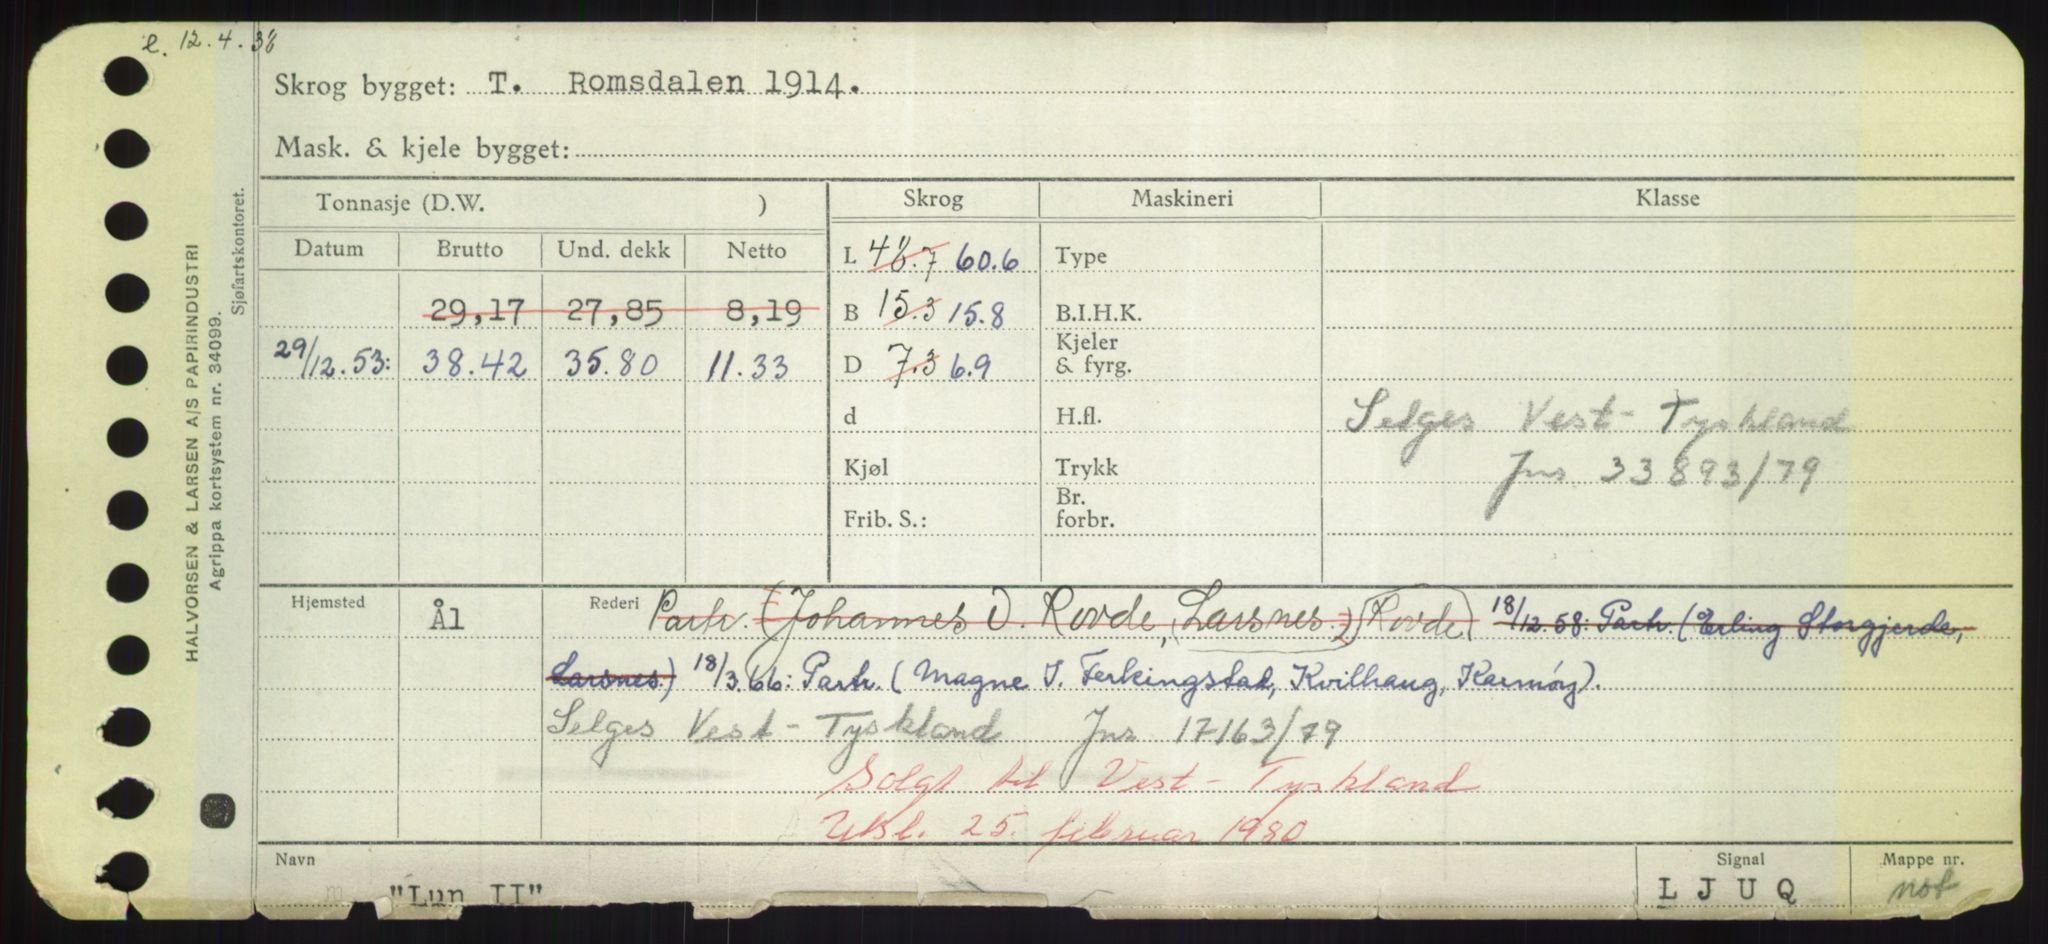 e. 12.4.38
Skrog bygget: T. Romsdalen 1914.
Mask. & kjele bygget:
Tonnasje (D.W. ) Skrog Maskineri Klasse
Datum Brutto Und. dekk Netto
L 48.7 60.6 Type
29,17 27,85 8,19 B 15.3 15.8 B.I.H.K.
29/12.53: 38.42 35.80 11.33 D 7.3 6.9 Kjeler & fyrg.
d H.fl. Selges Vest-Tyskland
Kjøl Trykk Jnr. 33893/79
Frib. S.: Br. forbr.
Hjemsted Ål Rederi Partr. (Johannes O. Rovde, Larsnes.) (Rovde) 18/12.58: Partr. (Erling Storgjerde,
Larsnes.) 18/3.66: Partr. (Magne I. Ferkingstad, Kvilhaug, Karmøy).
Selges Vest-Tyskland Jnr 17163/79
Solgt til Vest-Tyskland
Utsl. 25. februar 1980
Navn Signal Mappe nr.
m "Lun II" L J U Q not
HALVORSEN & LARSEN A/S PAPIRINDUSTRI
Agrippa kortsystem nr. 34099.
Sjøfartskontoret.